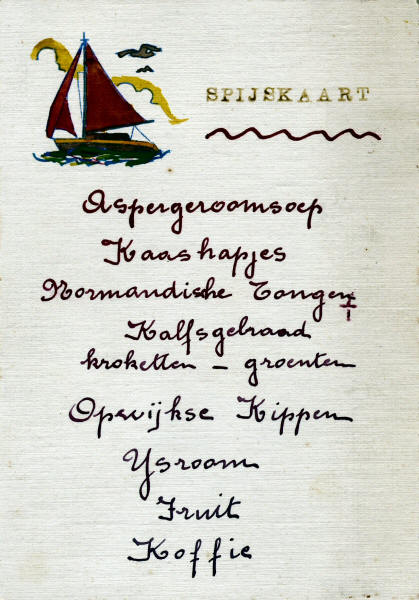 SPIJSKAART
Aspergeroomsoep
Kaashapjes
Normandische Tongen
Kalfsgebraad
kroketten - groenten
Opwijkse Kippen
Ysroom
Fruit
Koffie